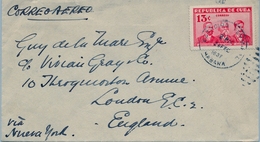 CORREO AEREO
REPUBLICA DE CUBA
13¢
Guy de la Mare Esqr
c/o Vivian Gray & Co.
10 Throgmorton Avenue
London E.C.2.
England
via
Nueva York.
HABANA